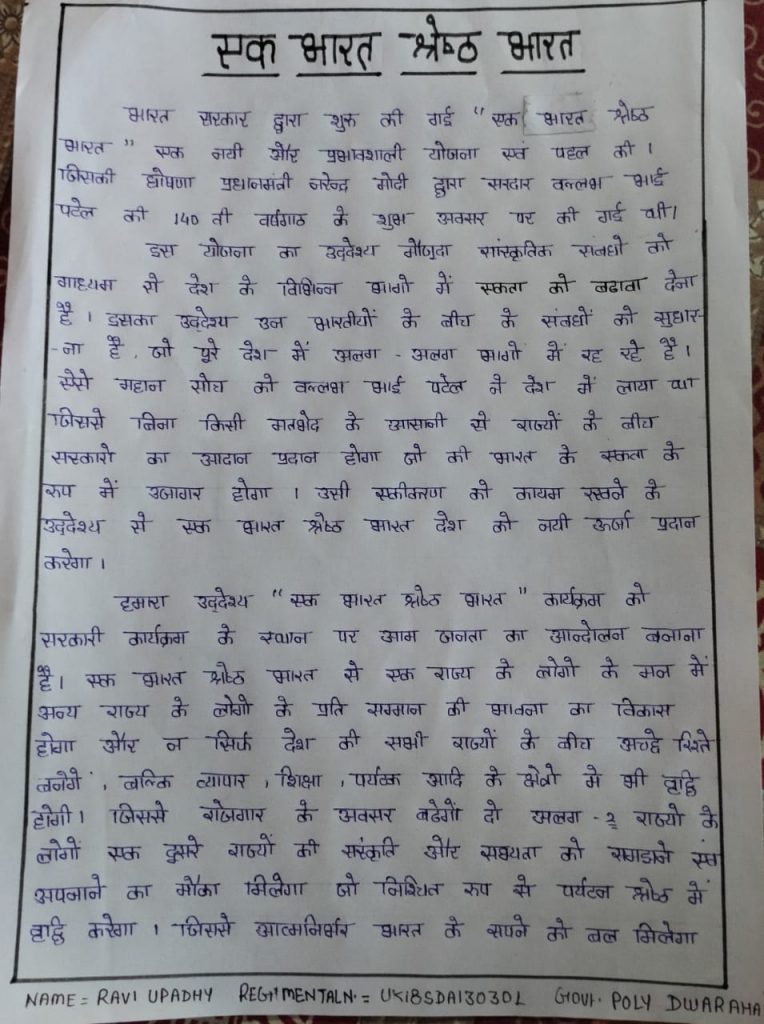 एक भारत श्रेष्ठ भारत
भारत सरकार द्वारा शुरु की गई "एक भारत श्रेष्ठ
भारत" एक नयी और प्रभावशाली योजना एवं पहल की ।
जिसकी घोषणा प्रधानमंत्री नरेन्द्र मोदी द्वारा सरदार वल्लभ भाई
पटेल की 140 वी वर्षगाठ के शुभ अवसर पर की गई थी।
इस योजना का उद्देश्य मौजुदा सांस्कृतिक संबधो को
माध्यम से देश के विभिन्न भागो में एकता को बढावा देना
है । इसका उद्देश्य उन भारतीयों के बीच के संबधों को सुधार-
-ना है , जो पुरे देश में अलग - अलग भागों में रह रहे है ।
ऐसे महान सोच को वल्लभ भाई पटेल ने देश में लाया था
जिससे बिना किसी मतभेद के आसानी से राज्यों के बीच
सरकारो का आदान प्रदान होगा जो की भारत के एकता के
रुप में उजागर होगा । उसी एकीकरण को कायम रखने के
उद्देश्य से एक भारत श्रेष्ठ भारत देश को नयी ऊर्जा प्रदान
करेगा ।
हमारा उद्देश्य "एक भारत श्रेष्ठ भारत" कार्यक्रम को
सरकारी कार्यक्रम के स्थान पर आम जनता का आन्दोलन बनाना
है । एक भारत श्रेष्ठ भारत से एक राज्य के लोगो के मन में
अन्य राज्य के लोगो के प्रति सम्मान की भावना का विकास
होगा और न सिर्फ देश की सभी राज्यों के बीच अच्छे रिश्ते
बनेगें , बल्कि व्यापार , शिक्षा , पर्यटक आदि के क्षेत्रो मे भी वृद्धि
होगी । जिससे रोजगार के अवसर बढेगों दो अलग -२ राज्यो के
लोगों एक दुसरे राज्यों की संस्कृति और सभ्यता को समझने एवं
अपनाने का मौका मिलेगा जो निश्चित रुप से पर्यटन श्रेष्ठ में
वृद्धि करेगा । जिससे आत्मनिर्भर भारत के सपने को बल मिलेगा
NAME = RAVI UPADHY REGIMENTAL N. = UK18SDA130302 GOVT. POLY DWARAHA